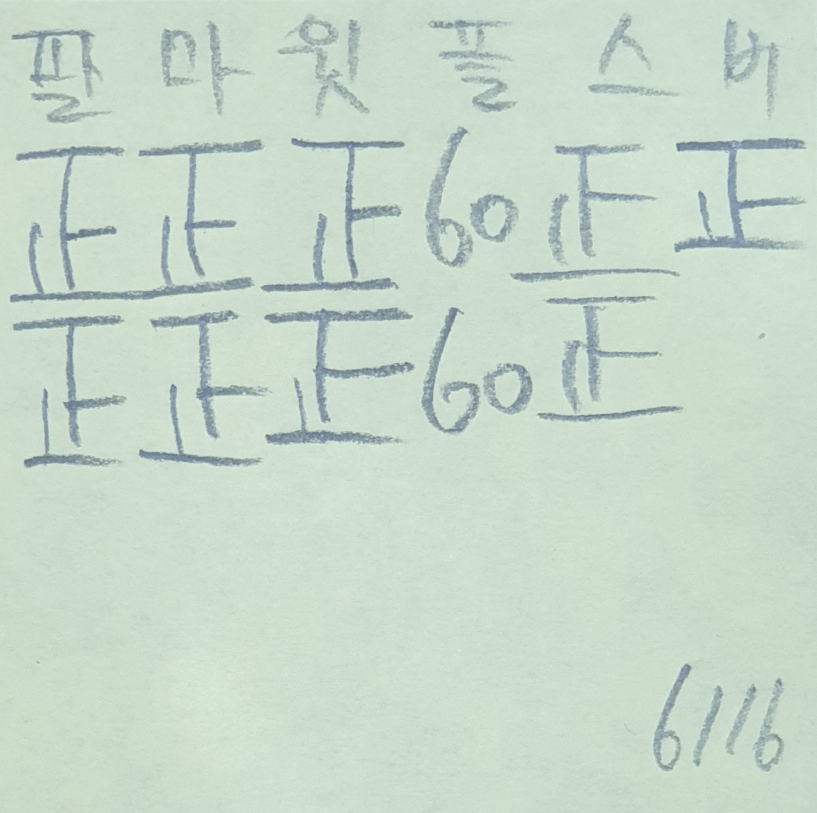 팔 마 윗 플 스 버
正 正 正 60 正 正
正 正 正 60 正
6/16